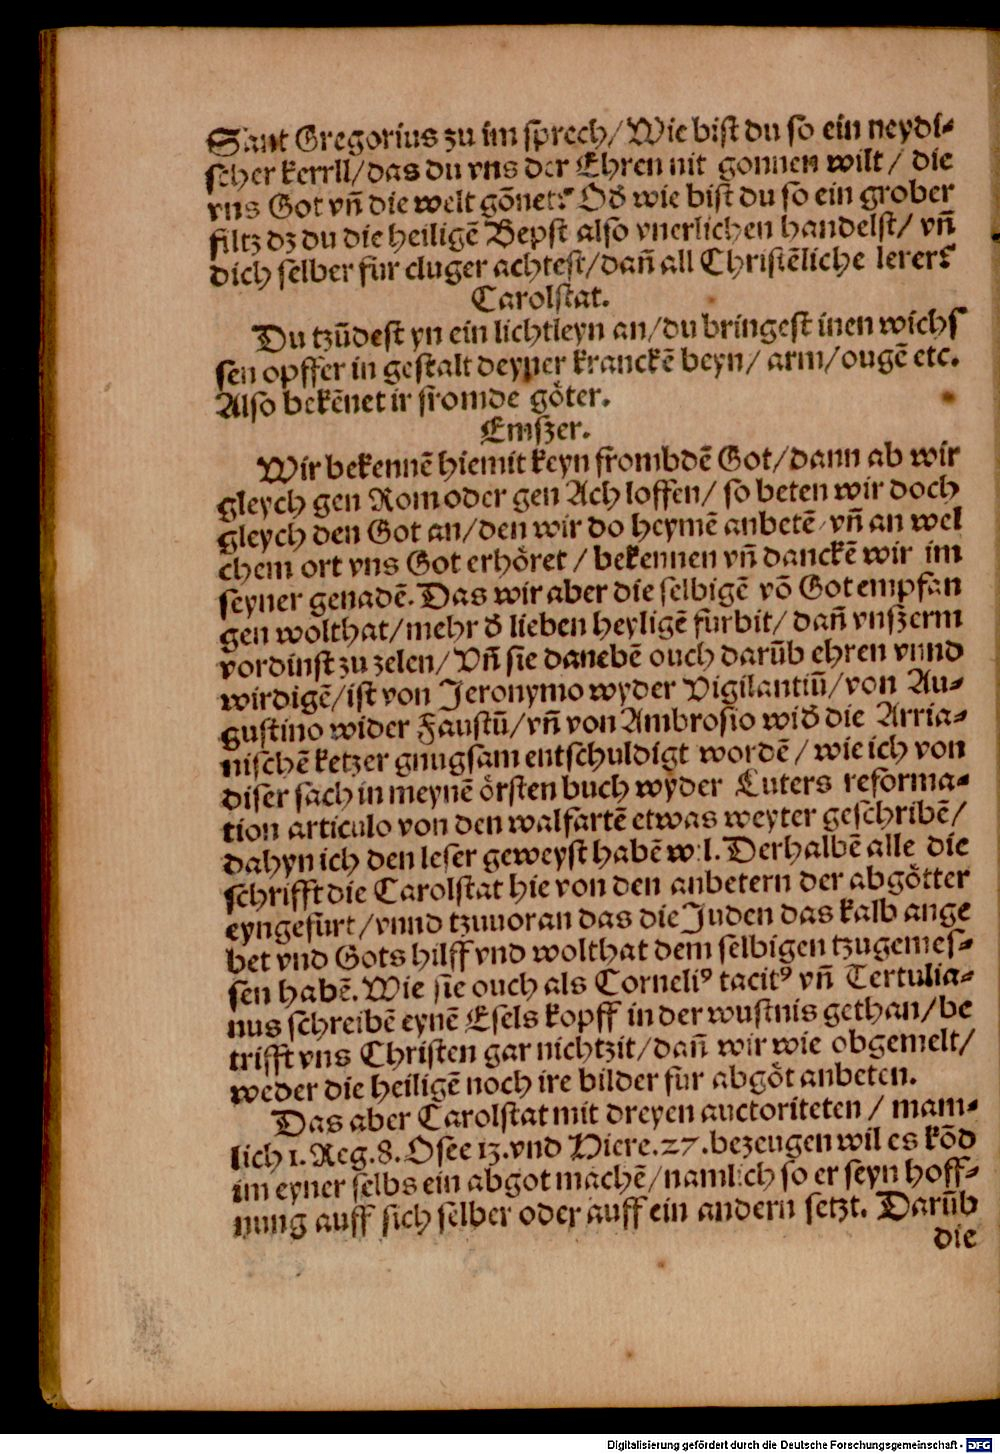 Sant Gregorius zu im sprech/ Wie bist du so ein neydi-
scher kerrll/ das du vns der Ehren nit gonnen wilt/ die
vns Got vñ die welt gõnet? Od̕ wie bist du so ein grober
filtz dz du die heiligẽ Bepst also vnerlichen handelst/ vñ
dich selber für cluger achtest/ dañ all Christẽliche lerer?
Carolstat.
Du tzũdest yn ein lichtleyn an/ du bringest inen wichs
sen opffer in gestalt deyner kranckẽ beyn/ arm/ ougẽ etc.
Also bekẽnet ir fromde göter.
Emszer.
Wir bekennẽ hiemit keyn frombdẽ Got/ dann ab wir
gleych gen Rom oder gen Ach loffen/ so beten wir doch
gleych den Got an/ den wir do heymẽ anbetẽ/ vñ an wel
chem ort vns Got erhöret/ bekennen vñ danckẽ wir im
seyner genadẽ. Das wir aber die selbigẽ võ Got empfan
gen wolthat/ mehr d̕ lieben heyligẽ furbit/ dañ vnszerm
vordinst zu zelen/ Vñ sie danebẽ ouch darũb ehren vnnd
wirdigẽ/ ist von Jeronymo wyder Vigilantiũ/ von Au-
gustino wider Faustũ/ vñ von Ambrosio wid̕ die Arria-
nischẽ ketzer gnugsam entschuldigt wordẽ/ wie ich von
diser sach in meynẽ örsten buch wyder Luters reforma-
tion articulo von den walfartẽ etwas weyter geschribẽ/
dahyn ich den leser geweyst habẽ wil. Derhalbẽ alle die
schrifft die Carolstat hie von den anbetern der abgötter
eyngefurt/ vnnd tzuuoran das die Juden das kalb ange
bet vnd Gots hilff vnd wolthat dem selbigen tzugemes-
sen habẽ. Wie sie ouch als Corneliꝰ tacitꝰ vñ Tertulia-
nus schreibẽ eynẽ Esels kopff in der wustnis gethan/ be
trifft vns Christen gar nichtzit/ dañ wir wie obgemelt/
weder die heiligẽ noch ire bilder fur abgöt anbeten.
Das aber Carolstat mit dreyen auctoriteten/ mam-
lich 1. Reg. 8. Osee 13. vnd Hiere. 27. bezeugen wil es kõd
im eyner selbs ein abgot machẽ/ namlich so er seyn hoff-
nung auff sich selber oder auff ein andern setzt. Darũb
die
Digitalisierung gefördert durch die Deutsche Forschungsgemeinschaft - DFG